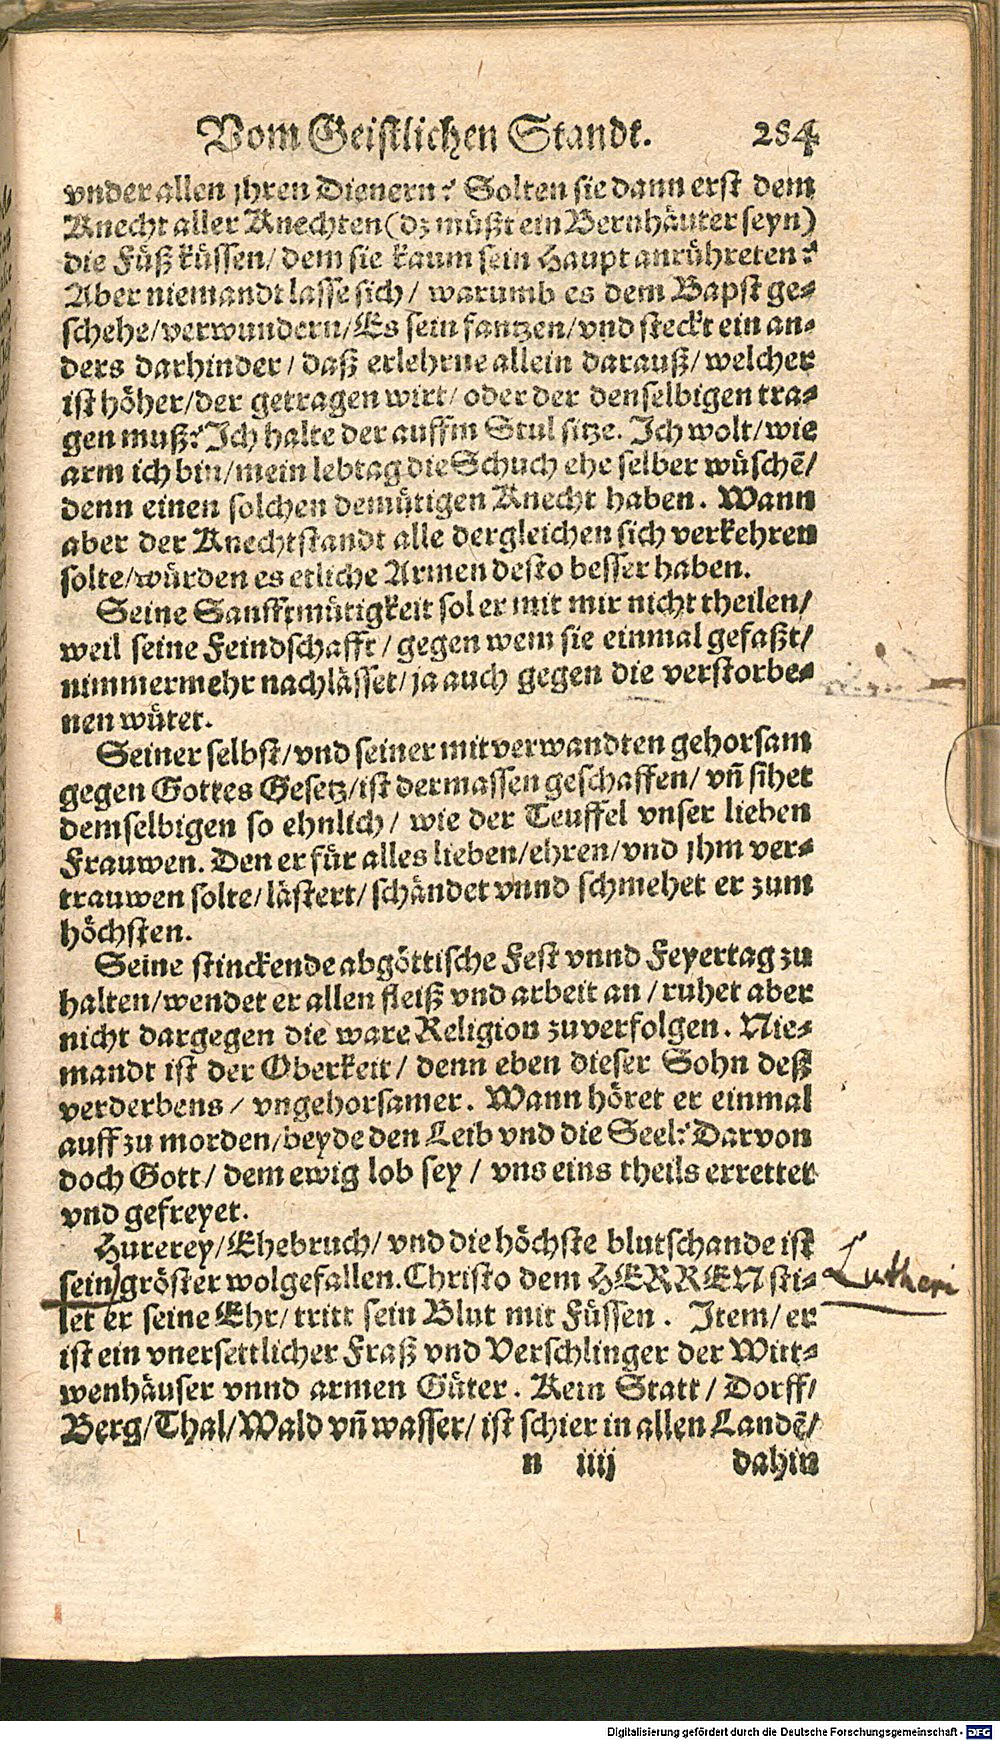 Vom Geistlichen Standt. 284
vnder allen jhren Dienern? Solten sie dann erst dem
Knecht aller Knechten (dz müßt ein Bernhäuter seyn)
die Füß küssen/ dem sie kaum sein Haupt anrühreten?
Aber niemandt lasse sich/ warumb es dem Bapst ge-
schehe/verwundern/Es sein fantzen/vnd steckt ein an-
ders darhinder/ daß erlehrne allein darauß/ welcher
ist höher/der getragen wirt/ oder der denselbigen tra-
gen muß? Ich halte der auffm Stul sitze. Ich wolt/wie
arm ich bin/mein lebtag die Schuch ehe selber wüschē/
denn einen solchen demütigen Knecht haben. Wann
aber der Knechtstandt alle dergleichen sich verkehren
solte/würden es etliche Armen desto besser haben.
Seine Sanfftmütigkeit sol er mit mir nicht theilen/
weil seine Feindschafft/ gegen wem sie einmal gefaßt/
nimmermehr nachlässet/ ja auch gegen die verstorbe-
nen wütet.
Seiner selbst/vnd seiner mitverwandten gehorsam
gegen Gottes Gesetz/ist dermassen geschaffen/ vñ sihet
demselbigen so ehnlich/ wie der Teuffel vnser lieben
Frauwen. Den er für alles lieben/ehren/vnd jhm ver-
trauwen solte/lästert/ schändet vnnd schmehet er zum
höchsten.
Seine stinckende abgöttische Fest vnnd Feyertag zu
halten/wendet er allen fleiß vnd arbeit an/ ruhet aber
nicht dargegen die ware Religion zuverfolgen. Nie-
mandt ist der Oberkeit/ denn eben dieser Sohn deß
verderbens/ vngehorsamer. Wann höret er einmal
auff zu morden/beyde den Leib vnd die Seel? Darvon
doch Gott/ dem ewig lob sey/ vns eins theils errettet
vnd gefreyet.
Hurerey/Ehebruch/ vnd die höchste blutschande ist
sein gröster wolgefallen. Christo dem HERREN sti- Lutheri
let er seine Ehr/ tritt sein Blut mit Füssen. Item/ er
ist ein vnersettlicher Fraß vnd Verschlinger der Witt-
wenhäuser vnnd armen Güter. Kein Statt/ Dorff/
Berg/Thal/Wald vñ wasser/ ist schier in allen Landē/
n iiij dahin
Digitalisierung gefördert durch die Deutsche Forschungsgemeinschaft - DFG